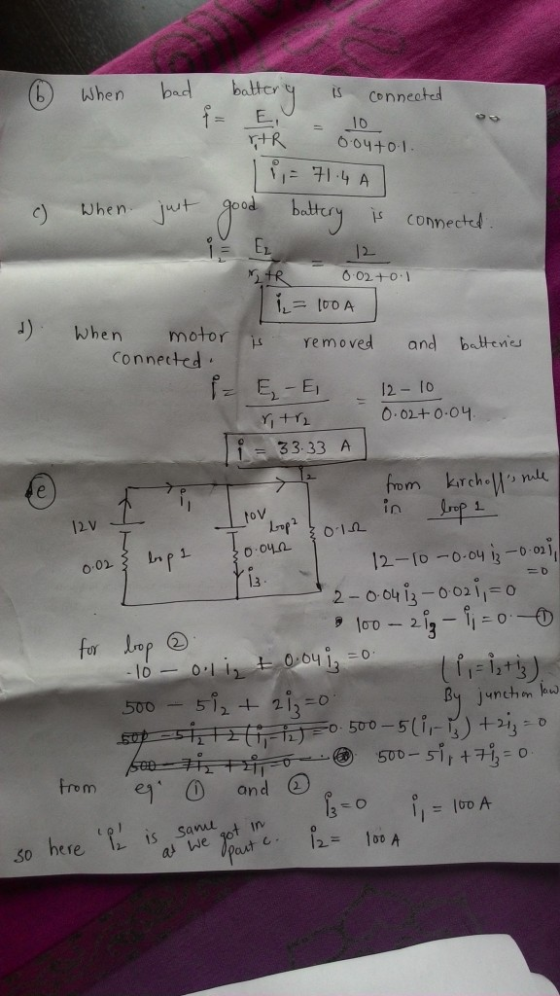 (b) When bad battery is connected
i = E₁/(r₁+R) = 10/(0.04+0.1)
i₁ = 71.4 A
c) When just good battery is connected.
i₂ = E₂/(r₂+R) = 12/(0.02+0.1)
i₂ = 100 A
d). When motor is removed and batteries
connected.
i = (E₂ - E₁)/(r₁ + r₂) = (12 - 10)/(0.02+0.04)
i = 33.33 A
(e)
i₁
i₂
12V
0.02
loop 1
10V
0.04Ω
i₃
loop 2
0.1Ω
from kirchoff's rule
in loop 1
12-10-0.04i₃-0.02i₁
=0
2-0.04i₃-0.02i₁=0
100-2i₃-i₁=0 — (1)
for loop (2)
-10 - 0.1 i₂ + 0.04 i₃ = 0
(i₁=i₂+i₃)
By junction law
500 - 5i₂ + 2i₃ = 0
500 - 5i₂ + 2(i₁-i₂) = 0
500-5(i₁-i₃)+2i₃=0
500 - 7i₂ + 2i₁ = 0
500-5i₁+7i₃=0
from eqⁿ (1) and (2)
i₃=0 i₁ = 100 A
so here 'i₂' is same as we got in part c.
i₂ = 100 A